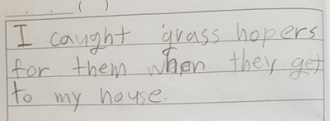 I caught grass hopers
for them when they get
to my house.